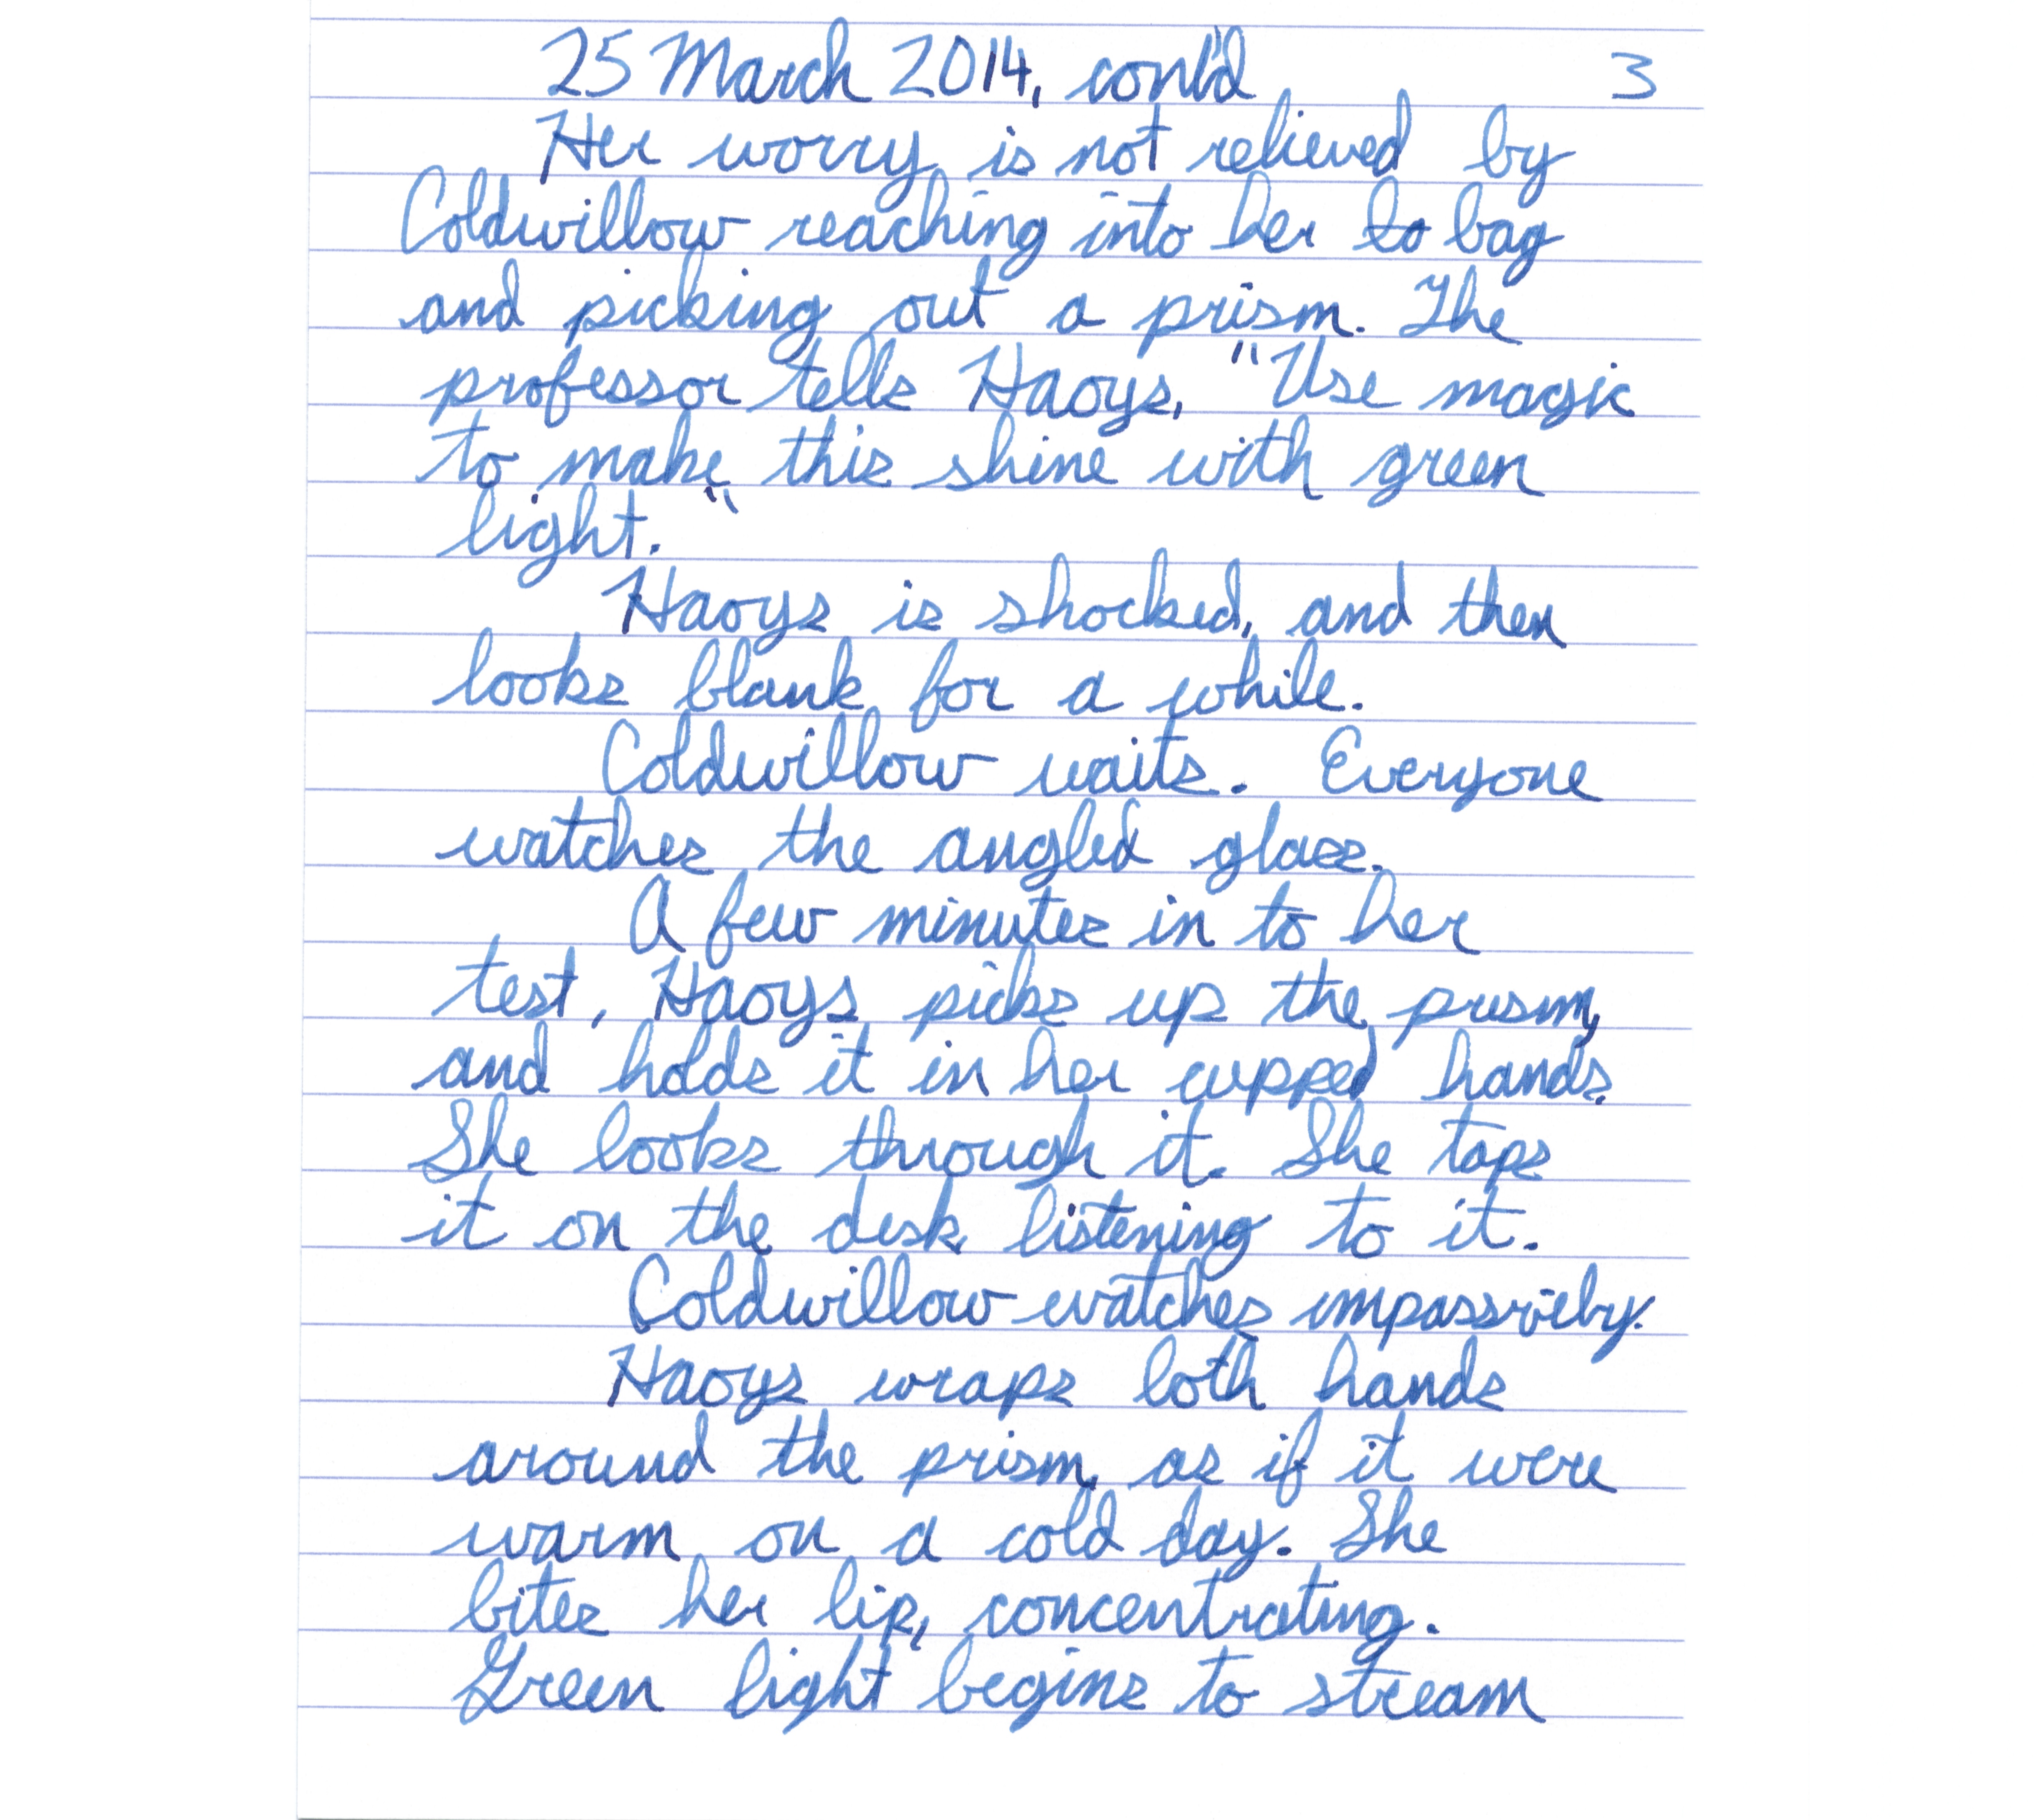 25 March 2014, cont'd 3
Her worry is not relieved by
Coldwillow reaching into her to bag
and picking out a prism. The
professor tells Haoys, "Use magic
to make this shine with green
light."
Haoys is shocked, and then
looks blank for a while.
Coldwillow waits. Everyone
watches the angled glass.
A few minutes in to her
test, Haoys picks up the prism,
and holds it in her cupped hands.
She looks through it. She taps
it on the desk, listening to it.
Coldwillow watches impassively.
Haoys wraps both hands
around the prism, as if it were
warm on a cold day. She
bites her lip, concentrating.
Green light begins to stream